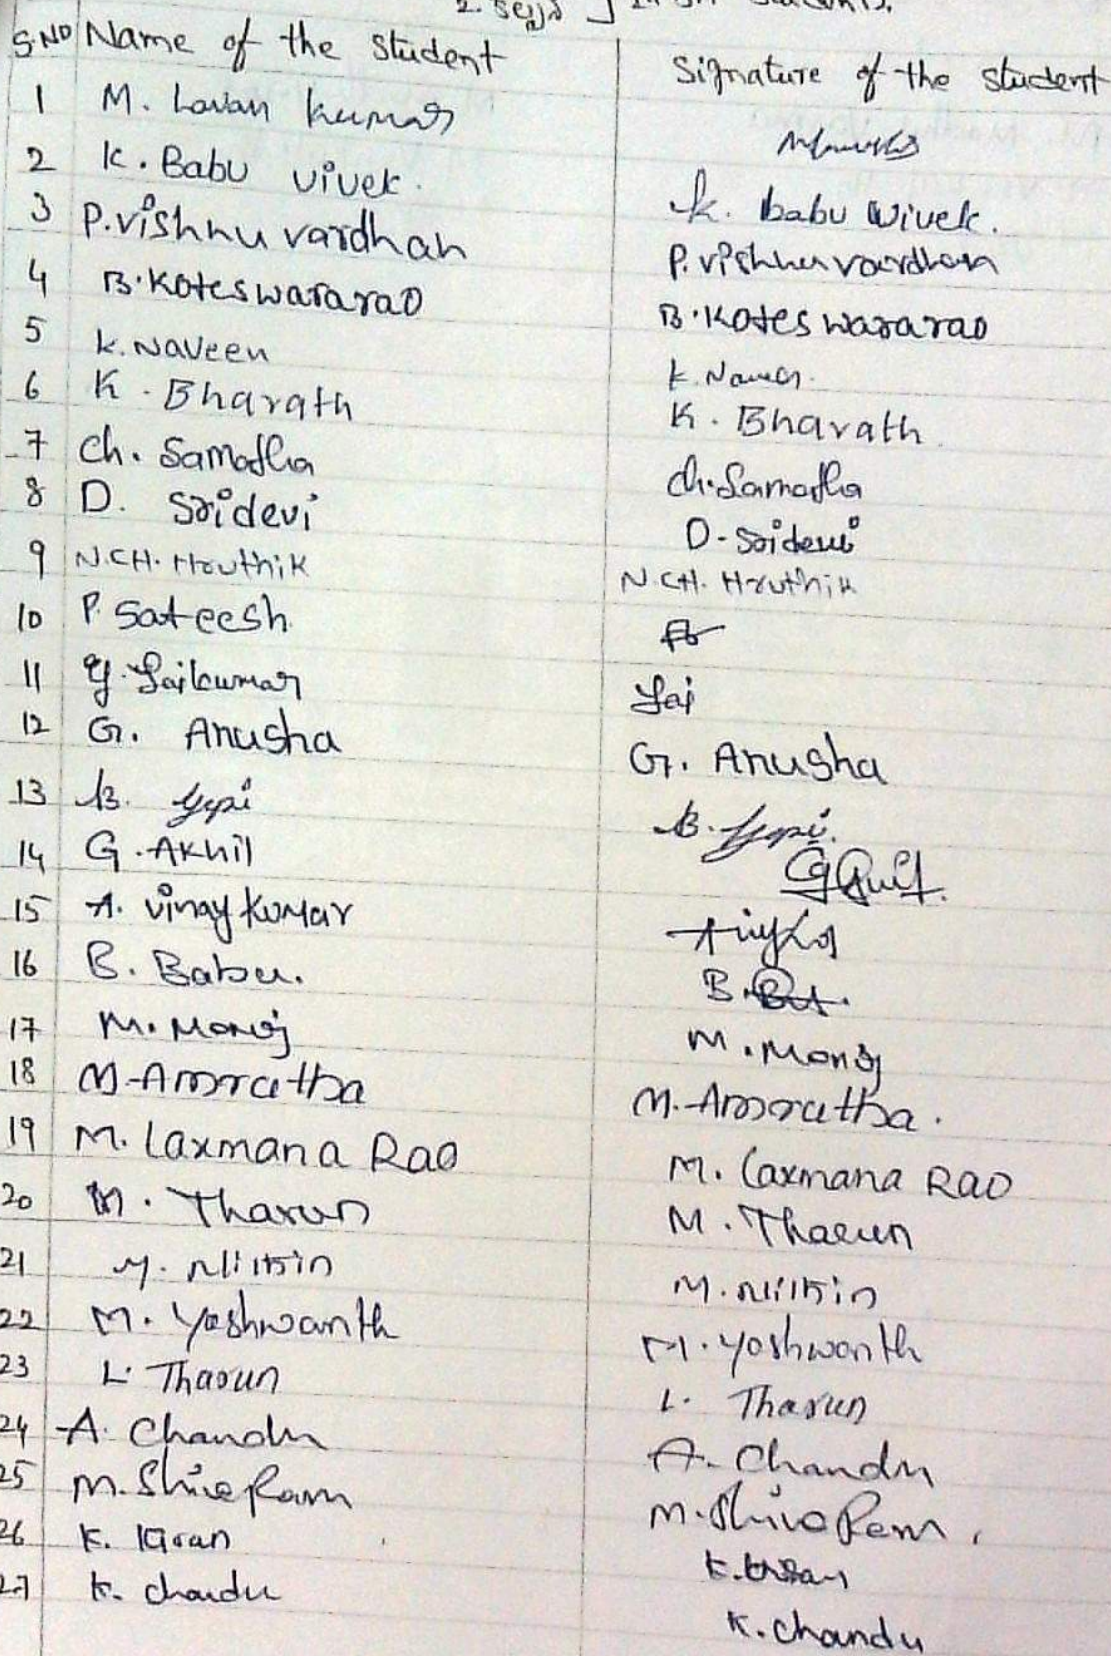 S.NO Name of the student Signature of the student
1 M. Lavan kumar
2 K. Babu vivek. k. babu vivek.
3 P.vishnu vardhan P.vishnu vardhan
4 B.Koteswararao B.Koteswararao
5 K.Naveen K.Naveen
6 K. Bharath K. Bharath
7 Ch. Samatha Ch.Samatha
8 D. Sridevi D-Sridevi
9 N.CH. Hruthik N.CH. Hruthik
10 P. Sateesh
11 Y.Saikumar Sai
12 G. Anusha G. Anusha
13 B. Gopi B.Gopi.
14 G.Akhil
15 A. vinay kumar
16 B. Babu. B.
17 M. Manoj M. Manoj
18 M-Amrutha M.-Amrutha.
19 M. Laxmana Rao M. Laxmana Rao
20 M. Tharun M. Tharun
21 M. Nithin M. Nithin
22 M. Yashwanth M. yashwanth
23 L. Tharun L. Tharun
24 A. Chandu A. Chandu
25 M. Shiva Ram M. Shiva Ram.
26 K. Kiran K. Kiran
27 K. chandu K. chandu